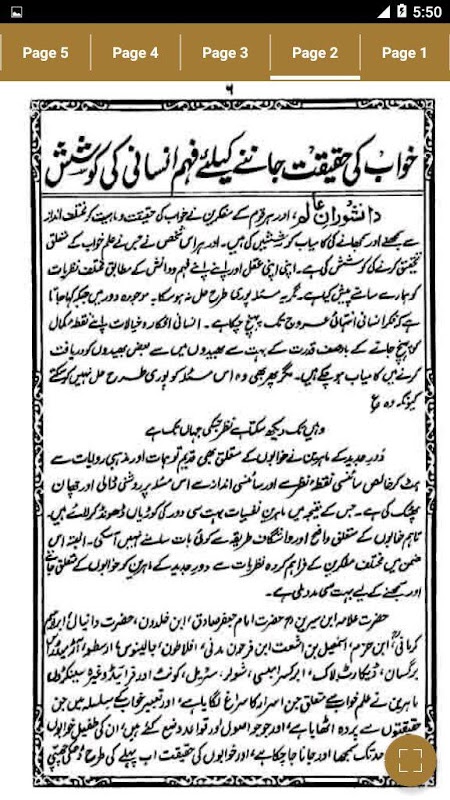 5:50
Page 5 Page 4 Page 3 Page 2 Page 1
۶
خواب کی حقیقت جاننے کیلئے فہم انسانی کی کوشش
دانشوران عالم اور ہر قوم کے مفکرین نے خواب کی حقیقت و ماہیت کو مختلف انداز
سے سمجھنے اور سمجھانے کی کامیاب کوششیں کی ہیں۔ اور ہر اس شخص نے جس نے علم خواب کے متعلق
تحقیق کرنے کی کوشش کی ہے۔ اپنی اپنی عقل اور اپنے اپنے فہم و دانش کے مطابق مختلف نظریات
کو ہمارے سامنے پیش کیا ہے۔ مگر یہ مسئلہ پوری طرح حل نہ ہو سکا۔ یہ موجودہ دور میں جبکہ کہا جاتا
ہے کہ فکر انسانی انتہائی عروج تک پہنچ چکا ہے۔ انسانی افکار و خیالات اپنے نقطۂ کمال
کو پہنچ جانے کے باوصف قدرت کے بہت سے بھیدوں میں سے بعض بھیدوں کو دریافت
کرنے میں کامیاب ہو چکے ہیں۔ مگر پھر بھی وہ اس مسئلہ کو پوری طرح حل نہیں کر سکتے
کیونکہ وہ ع
وہیں تک دیکھ سکتا ہے نظر جسکی جہاں تک ہے
دور جدید کے ماہرین نے خوابوں کے متعلق بھی قدیم توہمات اور مذہبی روایات سے
ہٹ کر خالص سائنسی نقطۂ نظر سے اور سائنسی انداز سے اس مسئلہ پر روشنی ڈالی اور چھان
پھٹک کی ہے۔ جس کے نتیجہ میں ماہرین نفسیات بہت سی دور کی کوڑیاں ڈھونڈ کر لائے ہیں۔
تاہم خوابوں کے متعلق واضح اور واشگاف طریقہ سے کوئی بات سامنے نہیں آسکی۔ البتہ اس
ضمن میں مختلف مفکرین کے فراہم کردہ نظریات سے دور جدید کے ماہرین کو خوابوں کے متعلق جاننے
اور سمجھنے کے لیے بہت سی مدد ملی ہے۔
حضرت علامہ ابن سیرین، حضرت امام جعفر صادق، ابن خلدون، حضرت دانیال، ابراہیم
کرمانی، ابن حزم، اسمٰعیل بن اشعث، ابن فرحون مدنی، افلاطون، جالینوس، ارسطو،
برگسان، ڈیکارٹ، لاک، سٹریل، کونٹ اور فرائیڈ وغیرہ سینکڑوں
ماہرین نے علم خواب سے متعلق جن اسرار کا سراغ لگایا ہے، اور تعبیر خواب کے سلسلہ میں جن
حقیقتوں سے پردہ اٹھایا ہے، اور جو جو اصول اور قواعد وضع کئے ہیں، ان کی طفیل خوابوں
حد تک سمجھا اور جانا جا چکا ہے، اور خوابوں کی حقیقت اب پہلے کی طرح ڈھکی چھپی